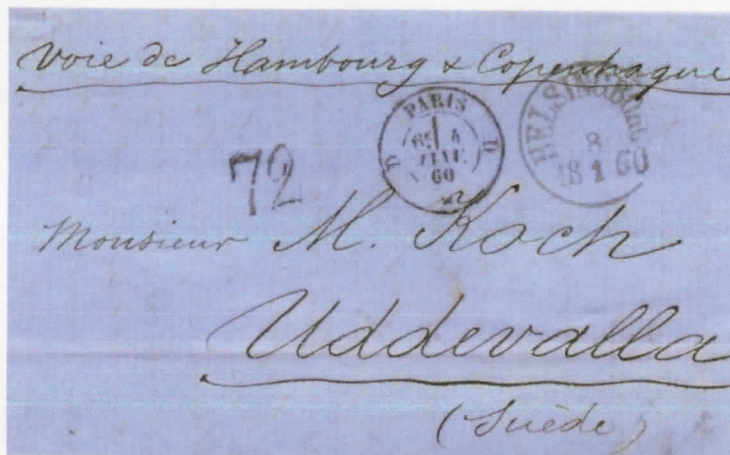 Voie de Hambourg & Copenhague
PARIS
4
JANV
60
D D
HELSINGBORG
8
18 1 60
72
Monsieur M. Koch
Uddevalla
(Suède)